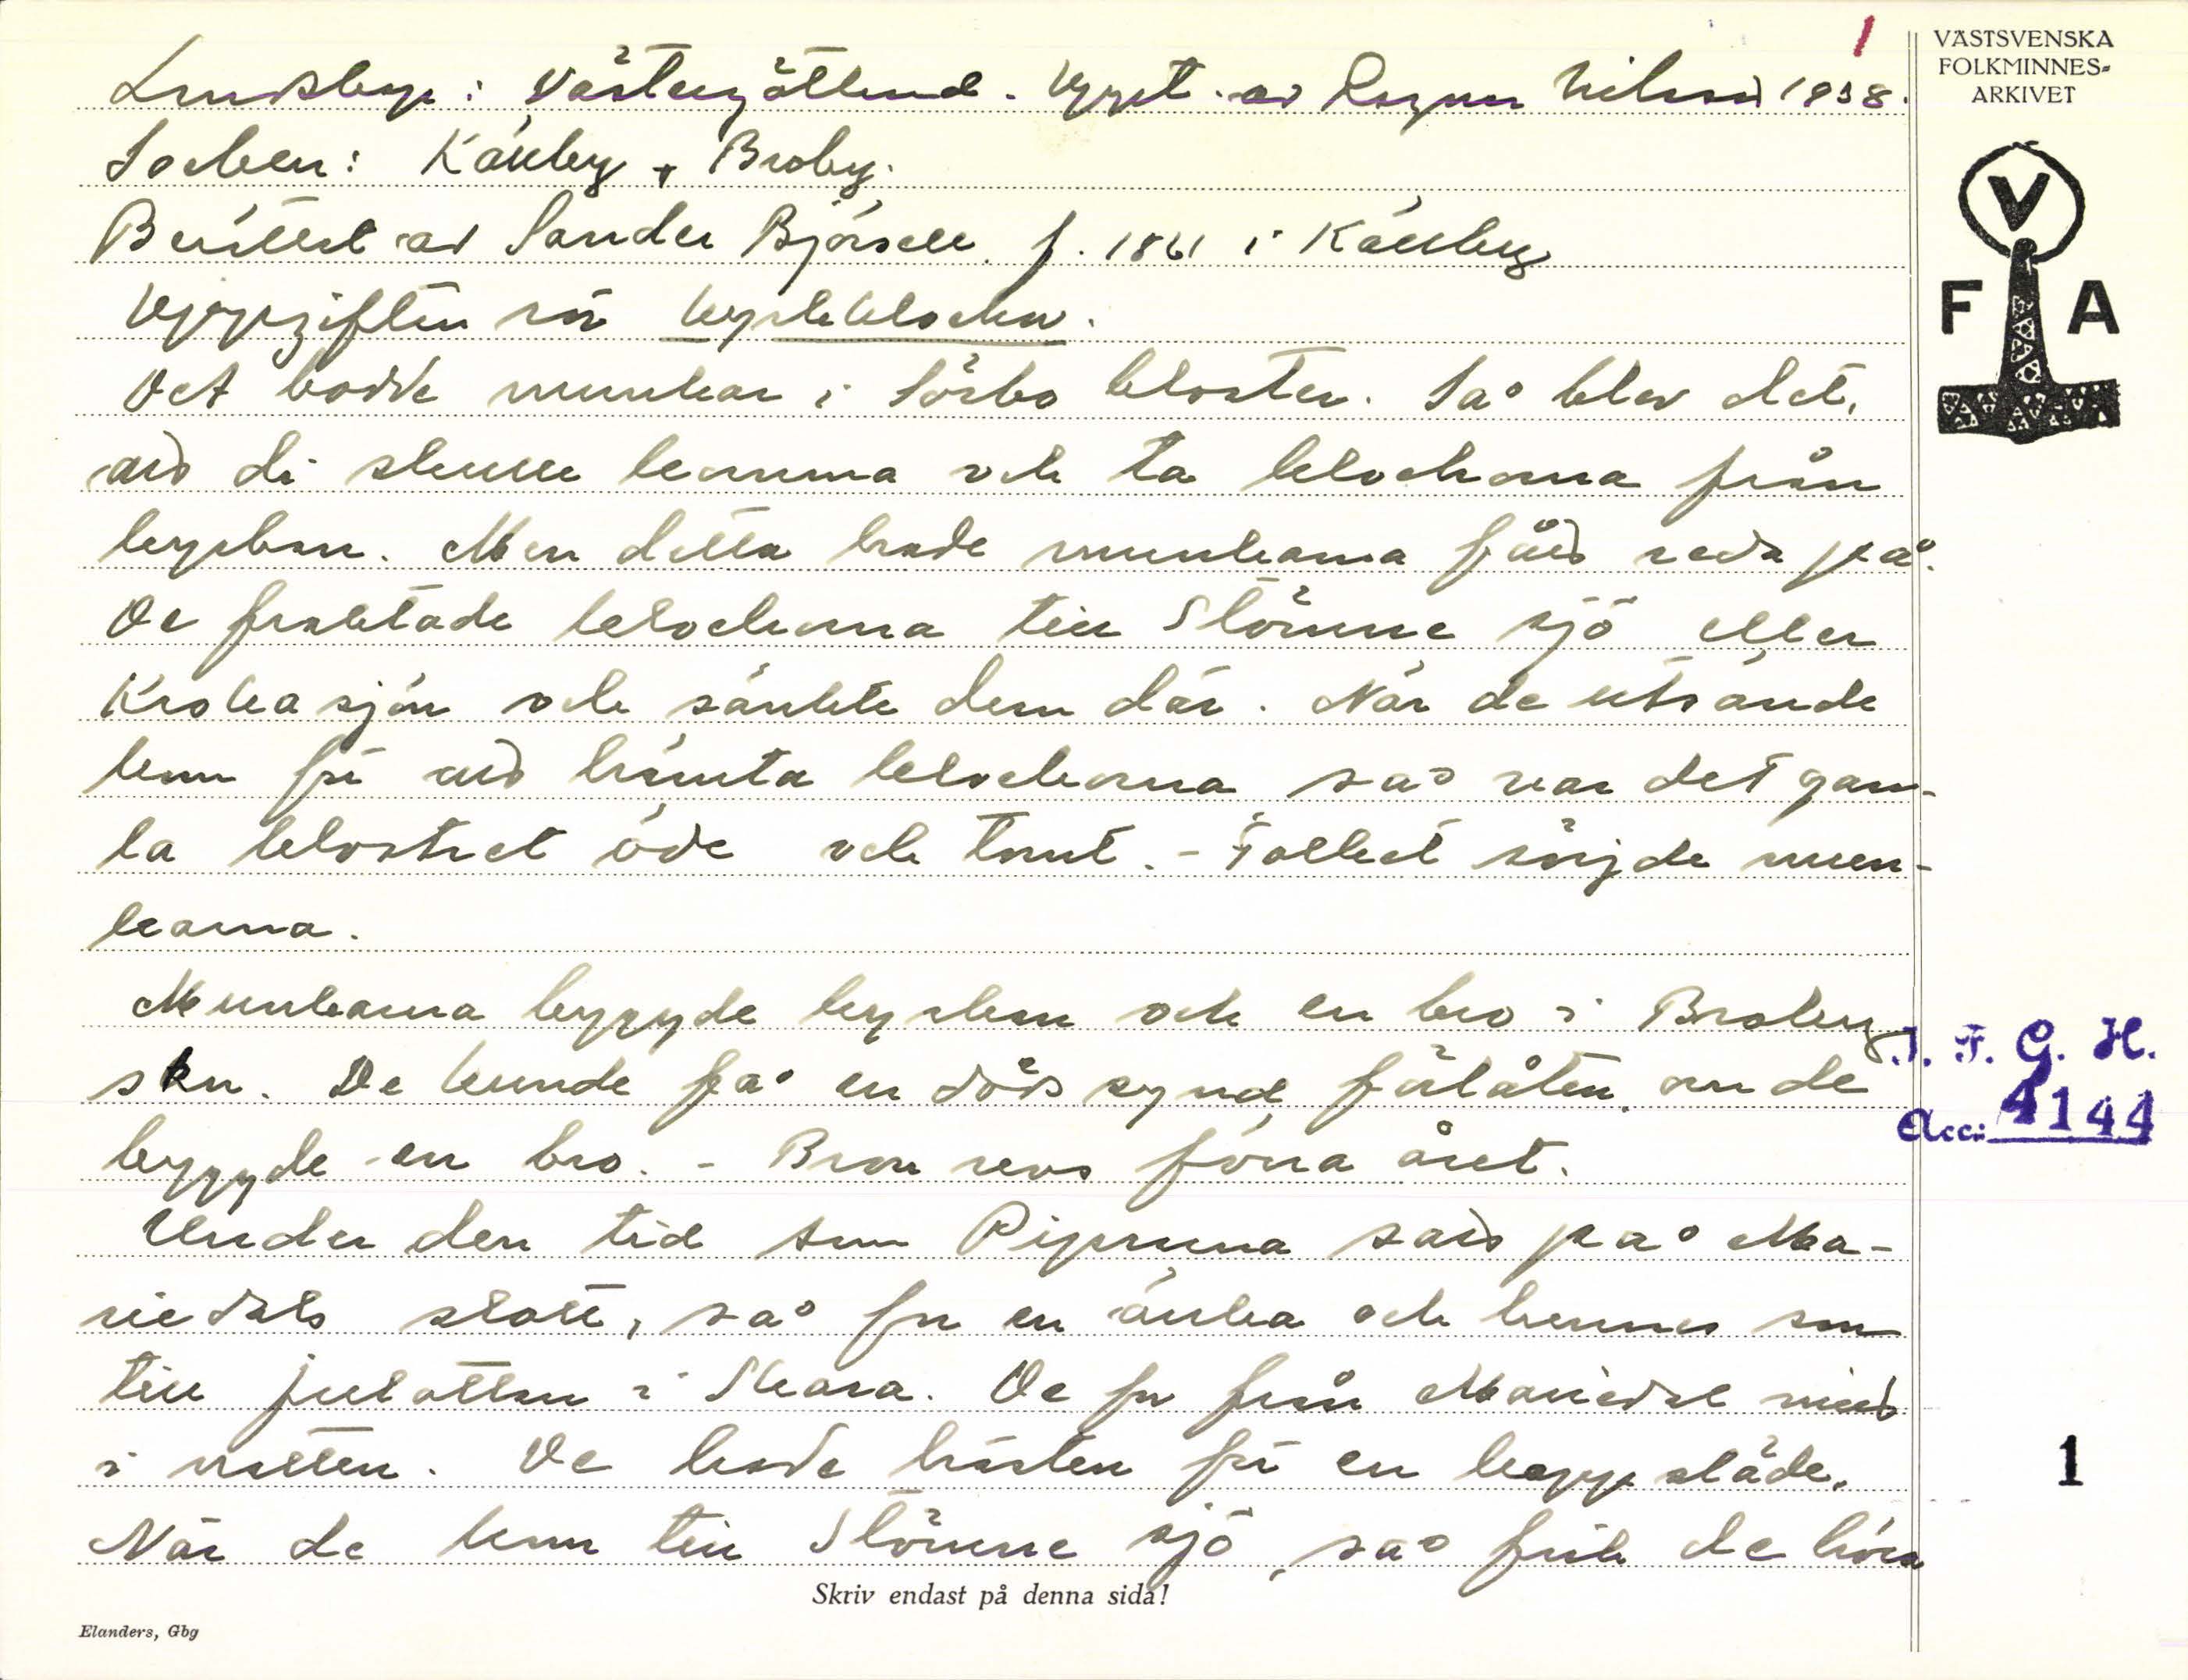 1
VÄSTSVENSKA
FOLKMINNES-
ARKIVET
V
F A
Landskap: Västergötland. Uppt. av Ragnar Nilsson 1938.
Socken: Källby + Broby.
Berättat av Sander Björsell f. 1861 i Källby
Uppgiften rör kyrkklockor.
Det bodde munkar i Sörbo kloster. Så blev det,
att di skulle komma och ta klockorna från
kyrkan. Men detta hade munkarna fått reda på.
De fraktade klockorna till Stömne sjö eller
Kroka sjön och sänkte dem där. När de utsände
kom för att hämta klockorna så var det gam-
la klostret öde och tomt. - Folket röjde mun-
karna.
Munkarna byggde kyrkan och en bro i Broby
skn. De kunde få en dödssynd förlåten om de
byggde en bro. - Bron revs förra året.
Under den tid som Piprarna satt på Ma-
riedals slott, så for en änka och hennes son
till julottan i Skara. De for från Mariedal mitt
i natten. De hade hästen för en kappsläde.
När de kom till Stömne sjö, så fick de höra
J. F. G. H.
Acc: 4144
1
Skriv endast på denna sida!
Elanders, Gbg